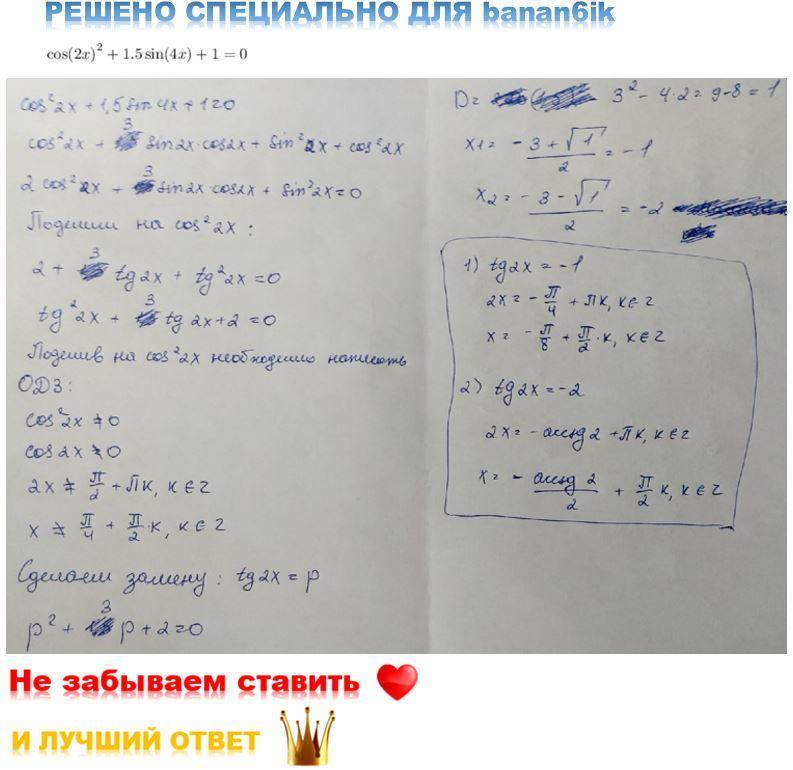 РЕШЕНО СПЕЦИАЛЬНО ДЛЯ banan6ik
cos(2x)² + 1.5 sin(4x) + 1 = 0
cos²2x + 1,5 sin 4x + 1 = 0
cos²2x + 3 sin2x·cos2x + sin²2x + cos²2x
2 cos²2x + 3 sin2x·cos2x + sin²2x = 0
Поделим на cos²2x :
2 + 3 tg2x + tg²2x = 0
tg²2x + 3 tg2x + 2 = 0
Поделив на cos²2x необходимо написать
ОДЗ:
cos²2x ≠ 0
cos2x ≠ 0
2x ≠ π/2 + πк, к ∈ z
x ≠ π/4 + π/2·к, к ∈ z
Сделаем замену : tg2x = p
p² + 3 p + 2 = 0
D = 3² - 4·2 = 9 - 8 = 1
x₁ = (-3 + √1)/2 = -1
x₂ = (-3 - √1)/2 = -2
1) tg2x = -1
2x = -π/4 + πк, к ∈ z
x = -π/8 + π/2·к, к ∈ z
2) tg2x = -2
2x = -arctg2 + πк, к ∈ z
x = -arctg2/2 + π/2 к, к ∈ z
Не забываем ставить
И ЛУЧШИЙ ОТВЕТ